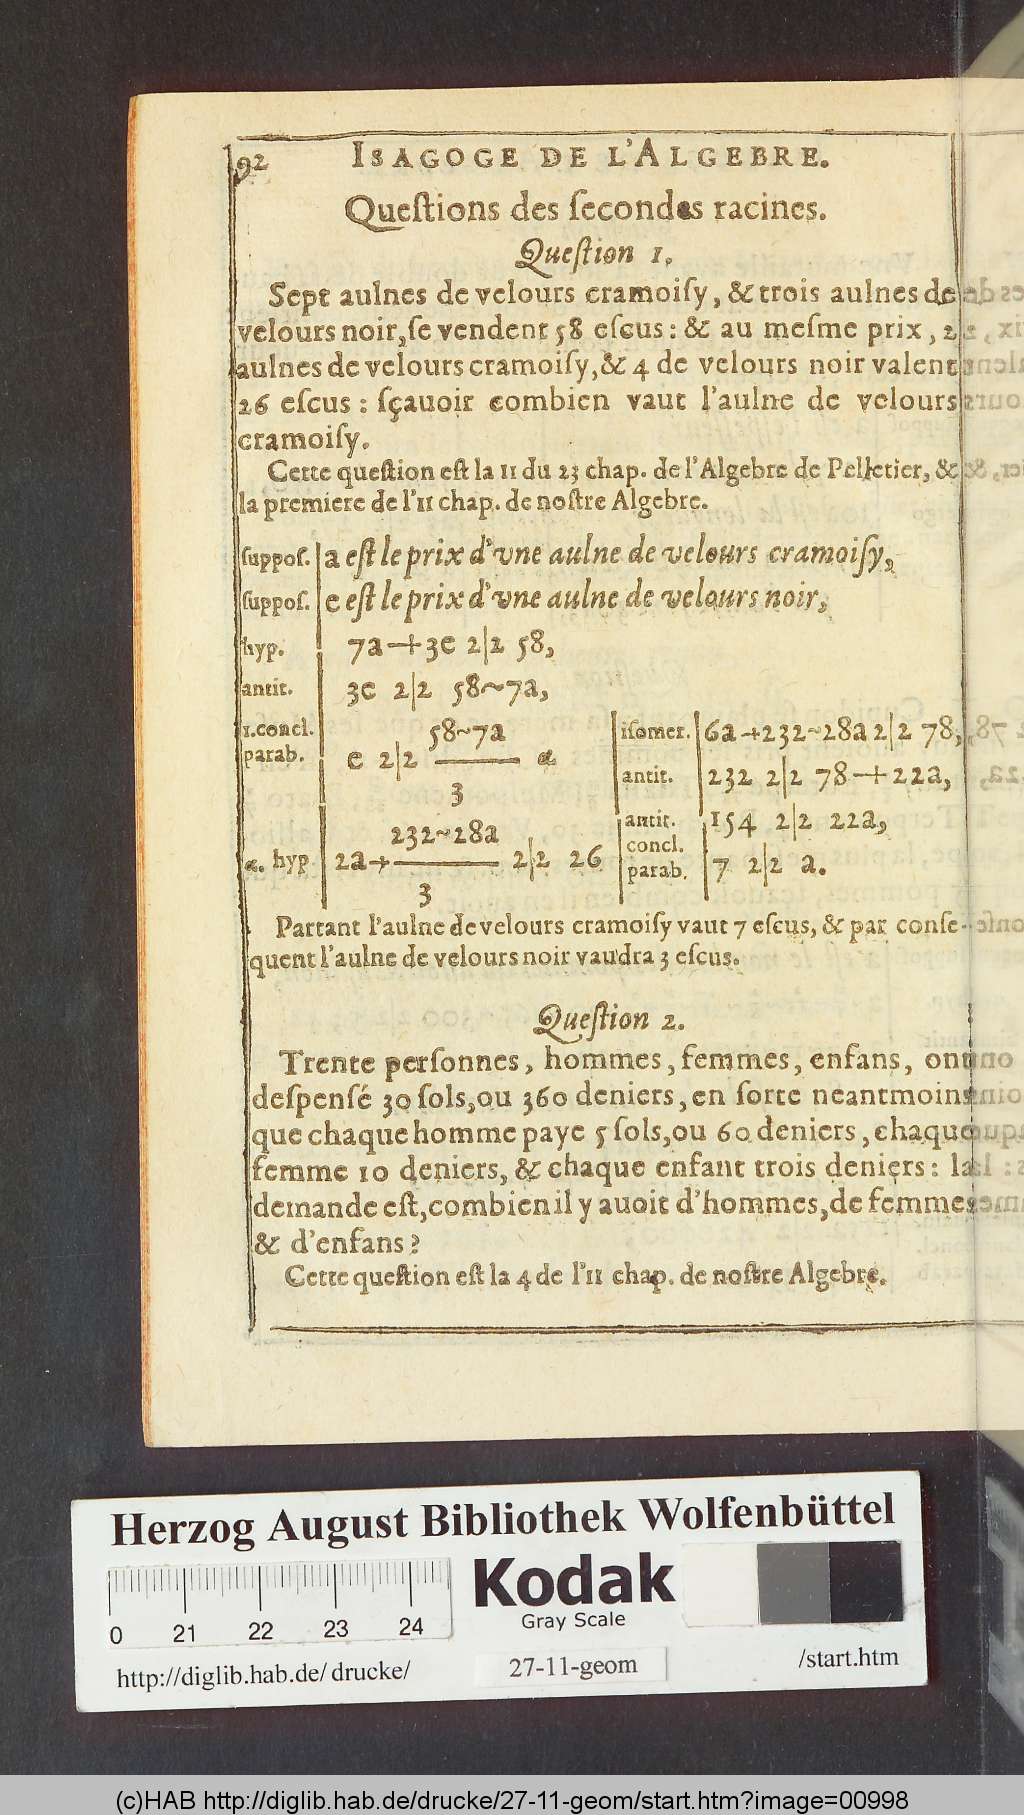 92 ISAGOGE DE L'ALGEBRE.
Queſtions des ſecondes racines.
Queſtion 1.
Sept aulnes de velours cramoiſy, & trois aulnes de
velours noir, ſe vendent 58 eſcus: & au meſme prix, 2
aulnes de velours cramoiſy, & 4 de velours noir valent
26 eſcus: ſçauoir combien vaut l'aulne de velours
cramoiſy.
Cette queſtion eſt la 11 du 23 chap. de l'Algebre de Pelletier, &
la premiere de l'11 chap. de noſtre Algebre.
ſuppoſ. | a eſt le prix d'vne aulne de velours cramoiſy,
ſuppoſ. | e eſt le prix d'vne aulne de velours noir,
hyp. 7a+3e 2|2 58,
antit. 3e 2|2 58~7a,
1.concl. parab. | e 2|2 58~7a / 3 α
α. hyp | 2a+ 232~28a / 3 2|2 26
iſomer. | 6a+232~28a 2|2 78,
antit. | 232 2|2 78+22a,
antit. | 154 2|2 22a,
concl. parab. | 7 2|2 a.
Partant l'aulne de velours cramoiſy vaut 7 eſcus, & par conſe-
quent l'aulne de velours noir vaudra 3 eſcus.
Queſtion 2.
Trente perſonnes, hommes, femmes, enfans, ont
deſpenſé 30 ſols, ou 360 deniers, en ſorte neantmoins
que chaque homme paye 5 ſols, ou 60 deniers, chaque
femme 10 deniers, & chaque enfant trois deniers: la
demande eſt, combien il y auoit d'hommes, de femmes
& d'enfans?
Cette queſtion eſt la 4 de l'11 chap. de noſtre Algebre.
Herzog August Bibliothek Wolfenbüttel
Kodak
Gray Scale
0 21 22 23 24
http://diglib.hab.de/drucke/ 27-11-geom /start.htm
(c)HAB http://diglib.hab.de/drucke/27-11-geom/start.htm?image=00998